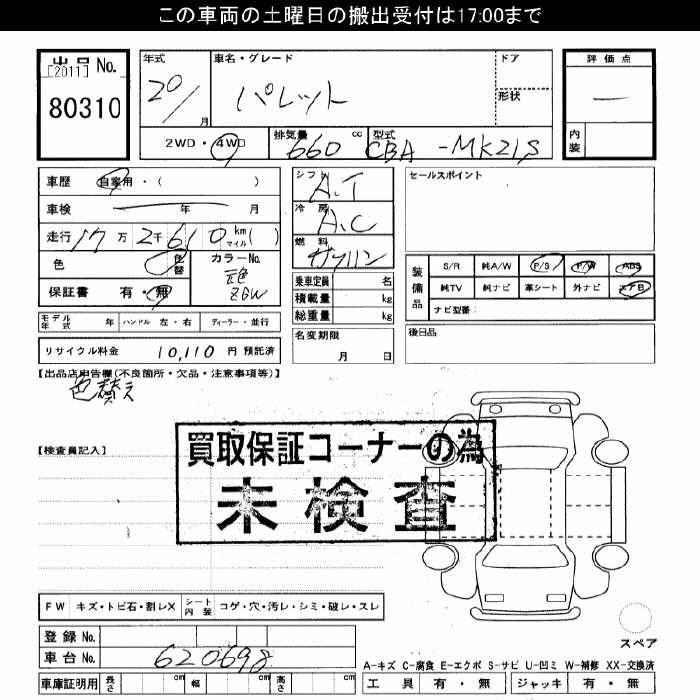 この車両の土曜日の搬出受付は17:00まで
出品 No.
[2011]
80310
年式 20/ 月
車名・グレード パレット
ドア
形状
評価点
内装
2WD・4WD
排気量 660 cc
型式 CBA -MK21S
車歴 自家用・( )
車検 年 月
走行 17万 2千 610 km マイル ( )
色 色替
カラーNo. 元色 ZGW
保証書 有・無
シフト A.T
冷房 A.C
燃料 ガソリン
乗車定員 名
積載量 kg
総重量 kg
セールスポイント
装備品 S/R 純A/W P/S P/W ABS
純TV 純ナビ 革シート 外ナビ エアB
ナビ型番:
モデル年式 年 ハンドル 左・右 ディーラー・並行
名変期限 月 日
後日品
リサイクル料金 10,110 円 預託済
【出品店申告欄(不良箇所・欠品・注意事項等)】
色替え
【検査員記入】
買取保証コーナーの為
未検査
FW キズ・トビ石・割レX シート内装 コゲ・穴・汚レ・シミ・破レ・スレ
スペア
登録 No.
車台 No. 620698
A-キズ C-腐食 E-エクボ S-サビ U-凹ミ W-補修 XX-交換済
車庫証明用 長さ cm 幅 cm 高さ cm
工具 有・無 ジャッキ 有・無